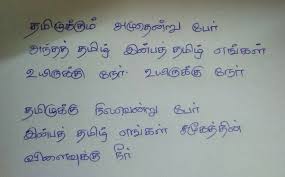 தமிழுக்கும் அமுதென்று பேர்
அந்தத் தமிழ் இன்பத் தமிழ் எங்கள்
உயிருக்கு நேர். உயிருக்கு நேர்
தமிழுக்கு நிலவென்று பேர்
இன்பத் தமிழ் எங்கள் சமூகத்தின்
விளைவுக்கு நீர்